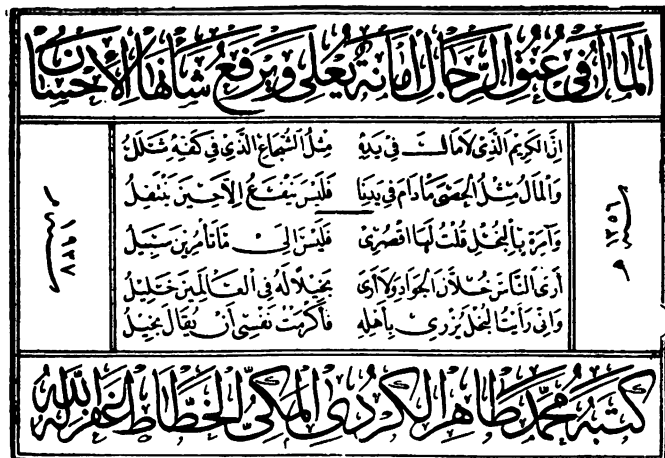 المَالُ فِي عُنُقِ الرِّجَالِ اَمَانَةٌ يُعْلِي وَيَرْفَعُ شَأْنَهَا الْاِحْسَانُ
سنة ١٣٥٦ ه
اِنَّ الْكَرِيمَ الَّذِي لَا مَالَ فِي يَدِهِ مِثْلُ الشُّجَاعِ الَّذِي فِي كَفِّهِ شَلَلُ
وَالْمَالُ مِثْلُ الْحَصَى مَا دَامَ فِي يَدِنَا فَلَيْسَ يَنْفَعُ اِلَّا حِينَ يَنْتَقِلُ
وَآمِرَةٍ بِالْبُخْلِ قُلْتُ لَهَا اقْصُرِي فَلَيْسَ اِلَى مَا تَأْمُرِينَ سَبِيلُ
اَرَى النَّاسَ خُلَّانَ الْجَوَادِ وَلَا اَرَى بَخِيلًا لَهُ فِي الْعَالَمِينَ خَلِيلُ
وَاِنِّي رَأَيْتُ الْبُخْلَ يُزْرِي بِاَهْلِهِ فَاَكْرَمْتُ نَفْسِي اَنْ يُقَالَ بَخِيلُ
سنة ١٩٣٧ م
كَتَبَهُ مُحَمَّد طَاهِر الْكُرْدِي الْمَكِّيُّ الْخَطَّاط غَفَرَ اللهُ لَهُ